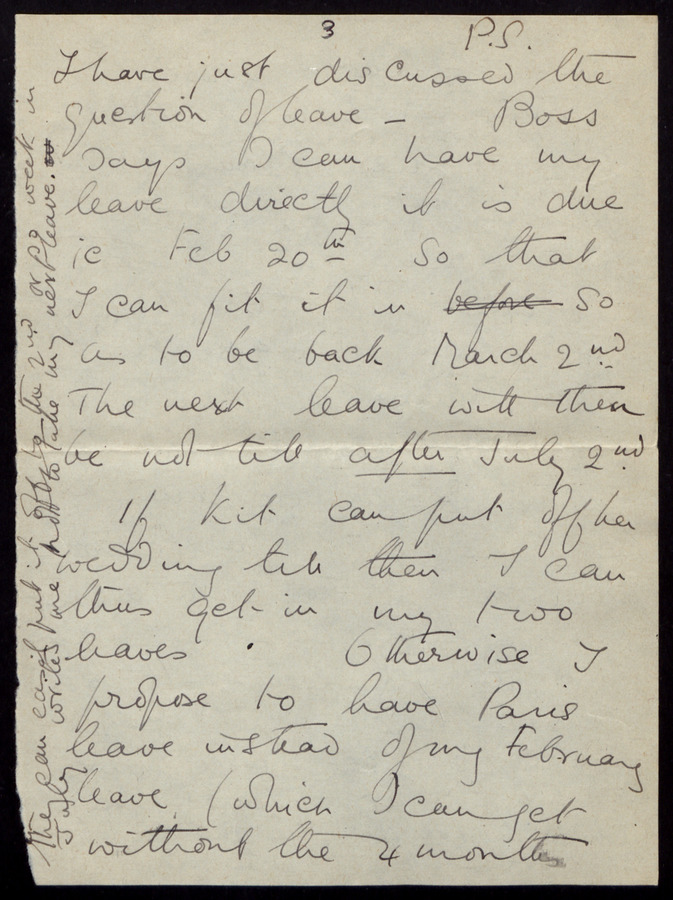 3
P.S.
I have just discussed the
question of leave – Boss
says I can have my
leave directly it is due
ie Feb 20th So that
I can fit it in before So
as to be back March 2nd
The next leave will then
be not till after July 2nd
If Kit can put off her
wedding till then I can
thus get in my two
leaves . Otherwise I
propose to have Paris
leave instead of my February
leave (which I can get
without the 4 months
They can easily put it off to the 2nd or 3rd week in
July writes me not to take my next leave.